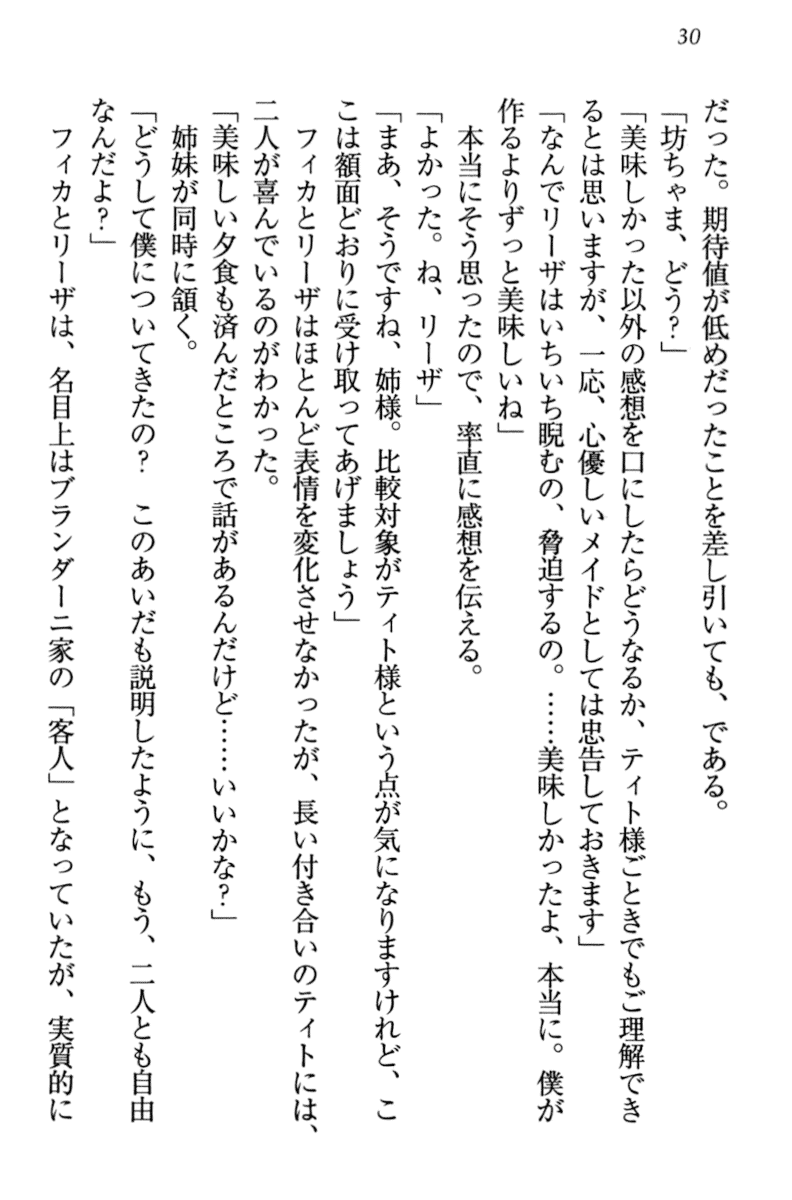 30
だった。期待値が低めだったことを差し引いても、である。
「坊ちゃま、どう？」
「美味しかった以外の感想を口にしたらどうなるか、ティト様ごときでもご理解でき
るとは思いますが、一応、心優しいメイドとしては忠告しておきます」
「なんでリーザはいちいち睨むの、脅迫するの。……美味しかったよ、本当に。僕が
作るよりずっと美味しいね」
　本当にそう思ったので、率直に感想を伝える。
「よかった。ね、リーザ」
「まあ、そうですね、姉様。比較対象がティト様という点が気になりますけれど、こ
こは額面どおりに受け取ってあげましょう」
　フィカとリーザはほとんど表情を変化させなかったが、長い付き合いのティトには、
二人が喜んでいるのがわかった。
「美味しい夕食も済んだところで話があるんだけど……いいかな？」
　姉妹が同時に頷く。
「どうして僕についてきたの？　このあいだも説明したように、もう、二人とも自由
なんだよ？」
　フィカとリーザは、名目上はブランダーニ家の「客人」となっていたが、実質的に